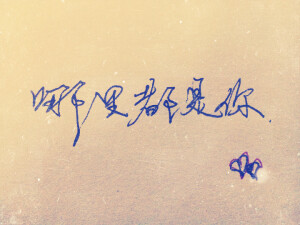 哪里都是你.